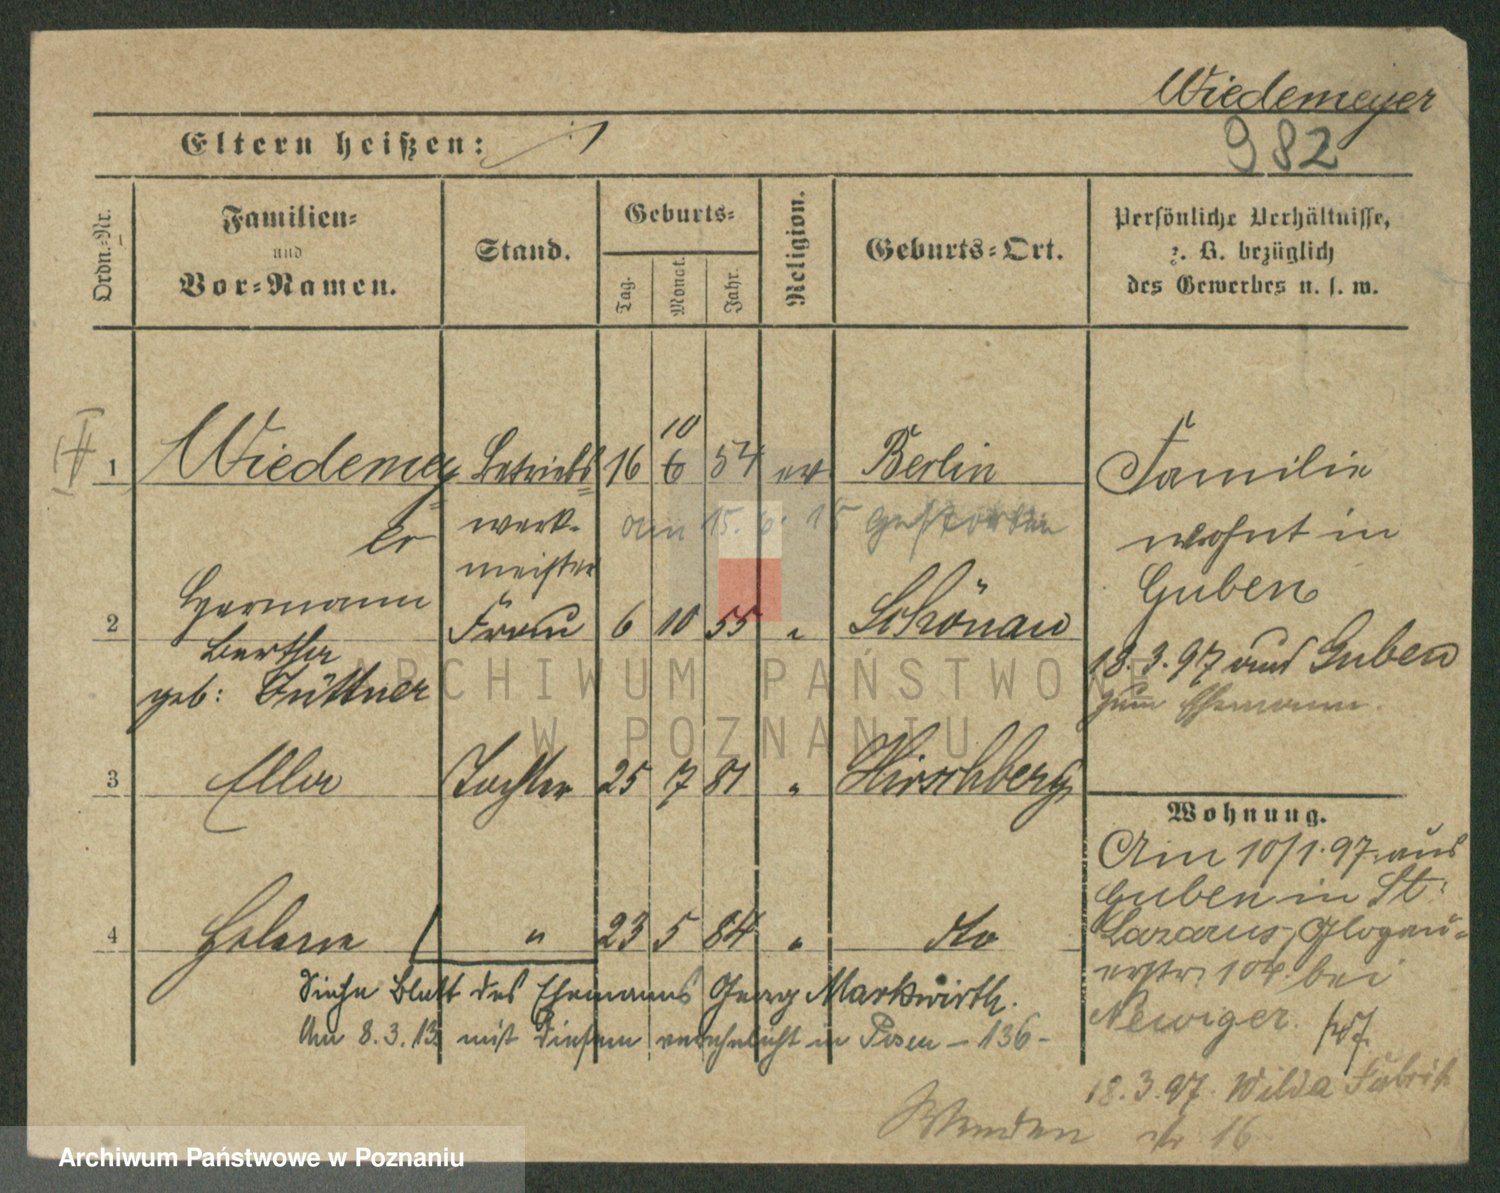 Wiedemeyer
982
Eltern heißen:
Ordn.-Nr.
Familien-
und
Vor-Namen.
Stand.
Geburts-
Tag.
Monat.
Jahr.
Religion.
Geburts-Ort.
Persönliche Verhältnisse,
z. B. bezüglich
des Gewerbes u. s. w.
10
1 Wiedemey Betriebs 16 6 54 ev Berlin
er werk-
meister
am 15. 6. 15 gestorben
Hermann
2 Frau 6 10 55 " Schönau
Bertha
geb: Büttner
3 Ella Tochter 25 7 81 " Hirschberg
4 Helene " 23 5 84 " do
Siehe Blatt des Ehemanns Georg Markwirth.
Am 8.3.13 mit diesem verehelicht in Posen - 136 -
Familie
wohnt in
Guben
18.3.97 aus Guben
zum Ehemann.
Wohnung.
Am 10/1.97. aus
Guben in St.
Lazarus, Glogau-
erstr. 104. bei
Newiger.
18.3.97. Wilda Fabrik
str 16
ARCHIWUM PAŃSTWOWE
W POZNANIU
Archiwum Państwowe w Poznaniu